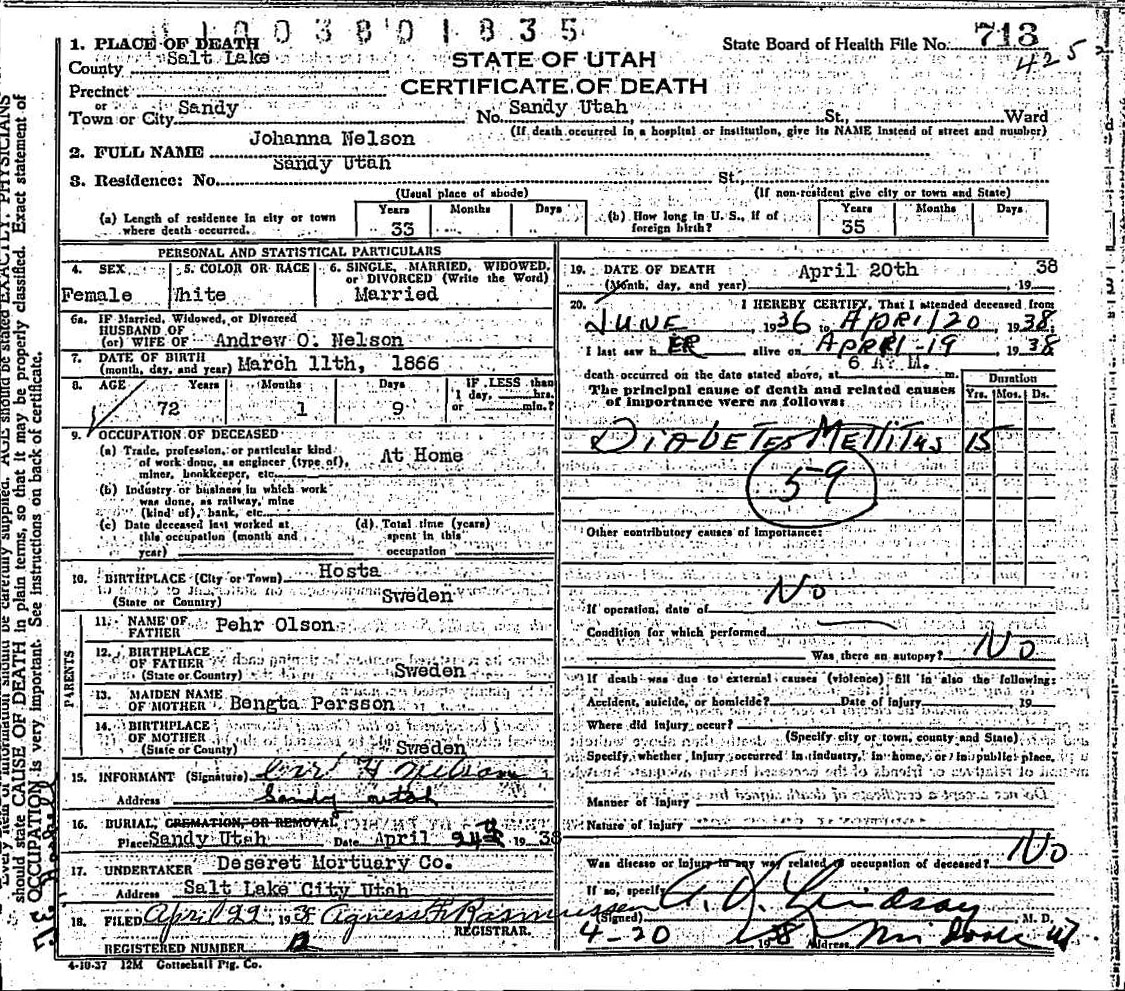 11003801835
1. PLACE OF DEATH
County Salt Lake
State Board of Health File No. 713
425
STATE OF UTAH
CERTIFICATE OF DEATH
Precinct
or
Town or City Sandy No. Sandy Utah, St., Ward
(If death occurred in a hospital or institution, give its NAME instead of street and number)
2. FULL NAME Johanna Nelson
3. Residence: No. Sandy Utah St.,
(Usual place of abode) (If non-resident give city or town and State)
(a) Length of residence in city or town where death occurred. Years 33 Months Days
(b) How long in U. S., if of foreign birth? Years 35 Months Days
PERSONAL AND STATISTICAL PARTICULARS
4. SEX Female
5. COLOR OR RACE White
6. SINGLE, MARRIED, WIDOWED, or DIVORCED (Write the Word) Married
6a. IF Married, Widowed, or Divorced
HUSBAND OF
(or) WIFE OF Andrew O. Nelson
7. DATE OF BIRTH
(month, day, and year) March 11th, 1866
8. AGE Years 72 Months 1 Days 9 IF LESS than 1 day, hrs. or min.?
9. OCCUPATION OF DECEASED
(a) Trade, profession, or particular kind of work done, as engineer (type of), miner, bookkeeper, etc. At Home
(b) Industry or business in which work was done, as railway, mine (kind of), bank, etc.
(c) Date deceased last worked at this occupation (month and year)
(d) Total time (years) spent in this occupation
10. BIRTHPLACE (City or Town) Hosta
(State or Country) Sweden
PARENTS
11. NAME OF FATHER Pehr Olson
12. BIRTHPLACE OF FATHER
(State or Country) Sweden
13. MAIDEN NAME OF MOTHER Bengta Persson
14. BIRTHPLACE OF MOTHER
(State or County) Sweden
15. INFORMANT (Signature) H Nelson
Address Sandy Utah
16. BURIAL, CREMATION, OR REMOVAL
Place Sandy Utah Date April 1938
17. UNDERTAKER Deseret Mortuary Co.
Address Salt Lake City Utah
18. FILED April 22 1938 Agness H Rasmussen
REGISTRAR.
REGISTERED NUMBER 12
4-10-37 12M Gottschall Ptg. Co.
19. DATE OF DEATH April 20th 38
(Month, day, and year) 19
20. I HEREBY CERTIFY, That I attended deceased from
JUNE, 1936 to APRIl 20, 1938;
I last saw hER alive on APRRI-19 1938
death occurred on the date stated above, at 6 A. M. m.
The principal cause of death and related causes
of importance were as follows:
Duration
Yrs. Mos. Ds.
DIABETES MELLITUS 15
59
Other contributory causes of importance:
If operation, date of No
Condition for which performed
Was there an autopsy? No
If death was due to external causes (violence) fill in also the following:
Accident, suicide, or homicide? Date of injury 19
Where did injury occur?
(Specify city or town, county and State)
Specify, whether injury occurred in industry, in home, or in public place,
Manner of injury
Nature of injury
Was disease or injury in any way related to occupation of deceased? No
If so, specify
(Signed) Lindsay M. D.
4-20 1938 Address Midvale Ut
Every item of information should be carefully supplied. AGE should be stated EXACTLY. PHYSICIANS
should state CAUSE OF DEATH in plain terms, so that it may be properly classified. Exact statement of
OCCUPATION is very important. See instructions on back of certificate.